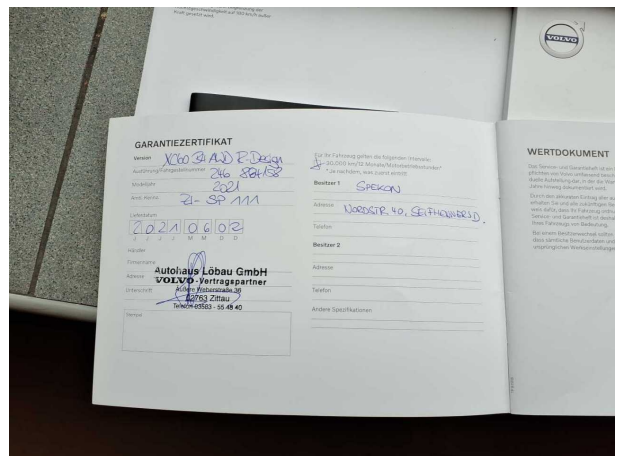 Kraft gesetzt wird.
VOLVO
GARANTIEZERTIFIKAT
Version XC60 B4 AWD R-Design
Ausführung/Fahrgestellnummer 246
Modelljahr 2021
Amtl. Kennz. ZI-SP 111
Lieferdatum
2021 06 02
J J J J M M D D
Händler
Firmenname
Autohaus Löbau GmbH
Adresse VOLVO-Vertragspartner
Unterschrift Äußere Weberstraße 36
02763 Zittau
Telefon 03583 - 55 48 40
Stempel
Für Ihr Fahrzeug gelten die folgenden Intervalle:
30.000 km/12 Monate/Motorbetriebsstunden*
* Je nachdem, was zuerst eintritt
Besitzer 1 SPEKON
Adresse NORDSTR. 40, SEIFHENNERSD.
Telefon
Besitzer 2
Adresse
Telefon
Andere Spezifikationen
WERTDOKUMENT
Das Service- und Garantieheft ist ein